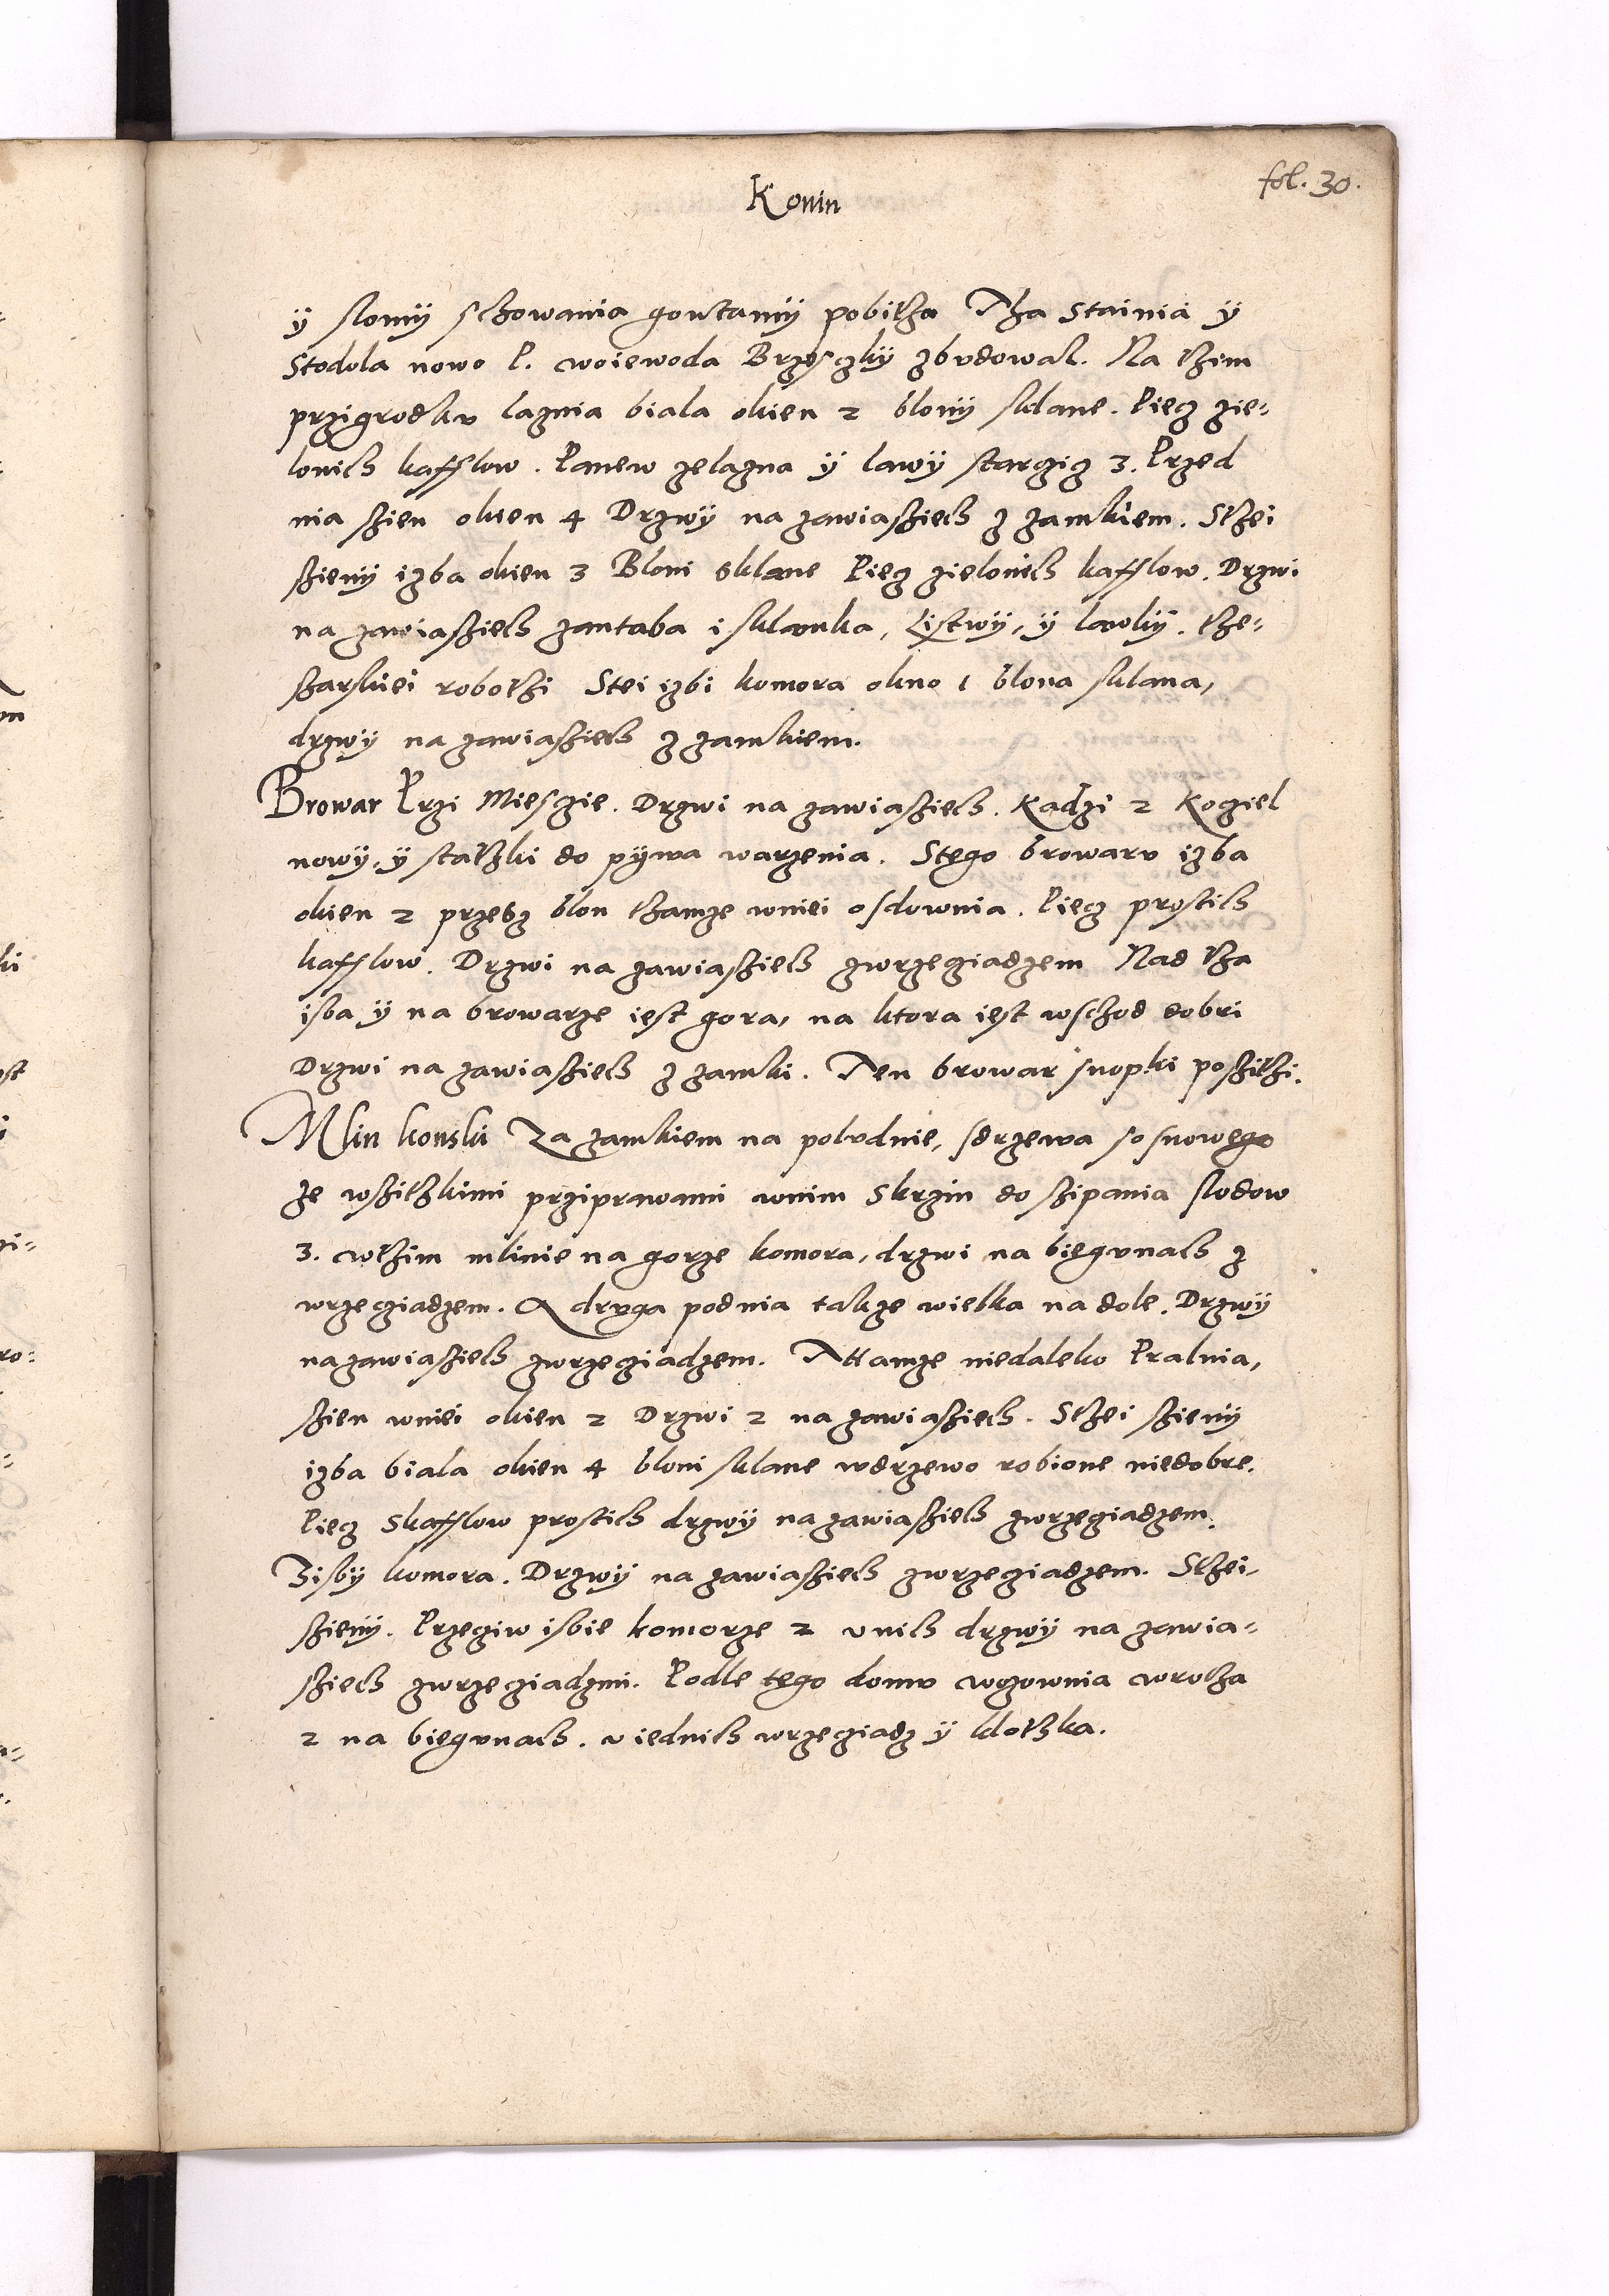 fol. 30.
Konin
ÿ slomÿ schowania gontamÿ pobitha Tha Stainia ÿ
Stodola nowo P. woiewoda Brzesczkÿ zbvdowal. Na thim
przigrodkv laznia biala okien 2 blonÿ sklane. Piecz zie-
lonich kafflow. Panew zelazna ÿ lawÿ starziz 3. Przed
nia szien okien 4 Drzwÿ na zawiasziech z zamkiem. Sthei
szienÿ izba okien 3 Bloni sklane Piecz zielonich kafflow. Drzwi
na zawiasziech zantaba i sklamka, Listwÿ, ÿ lawkÿ. the-
szarskiei robothi Stei izbi komora okno 1 blona sklana,
drzwÿ na zawiasziech z zamkiem.
Browar Przi Miesczie. Drzwi na zawiasziech. Kadzi 2 Koziel
nowÿ, ÿ stathki do pÿwa warzenia. Stego browarv izba
okien 2 przesz blon thamze wniei osdownia. Piecz prostich
kafflow. Drzwi na zawiasziech zwrzecziadzem Nad tha
isba ÿ na browarze iest gora, na ktora iest wschod dobri
Drzwi na zawiasziech z zamki. Ten browar snopki poszithi.
Mlin konski Za zamkiem na polvdnie, sdrzewa sosnowego
ze wszithkimi prziprawami wnim Skrzin do szipania slodow
3. wthim mlinie na gorze komora, drzwi na biegvnach z
wrzecziadzem. A drvga pod nia takze wielka na dole. Drzwÿ
na zawiasziech zwrzecziadzem. Tamze niedaleko Pralnia,
szien wniei okien 2 Drzwi 2 na zawiasziech. Sthei szienÿ
izba biala okien 4 bloni sklane wdrzewo robione niedobre.
Piecz Skafflow prostich drzwÿ na zawiasziech zwrzecziadzem.
Zisbÿ komora. Drzwÿ na zawiasziech zwrzecziadzem. Sthei
szienÿ. Przeciw isbie komorze 2 vnich drzwÿ na zawia-
sziech zwrzecziadzmi. Podle tego domv wozownia wrotha
2 na biegvnach. v iednich wrzecziadz ÿ klothka.